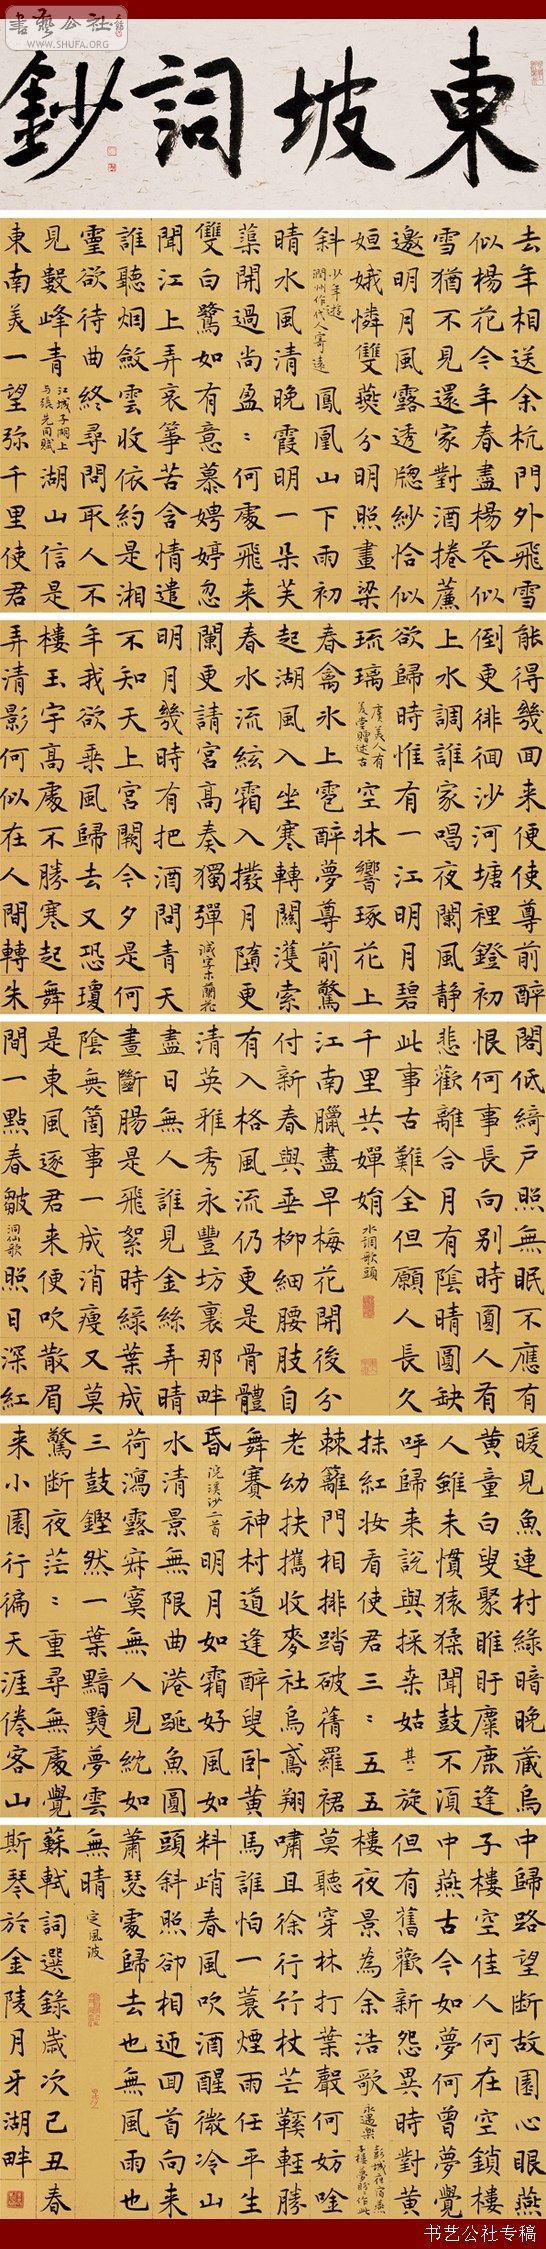 書藝公社
WWW.SHUFA.ORG
東坡詞鈔
去年相送余杭門外飛雪
似楊花今年春盡楊花似
雪猶不見還家對酒捲簾
邀明月風露透牕紗恰似
姮娥憐雙燕分明照畫梁
斜 少年遊 潤州作代人寄遠 鳳凰山下雨初
晴水風清晚霞明一朵芙
蕖開過尚盈〻何處飛來
雙白鷺如有意慕娉婷忽
聞江上弄哀箏苦含情遣
誰聽烟斂雲收依約是湘
靈欲待曲終尋問取人不
見數峰青 江城子湖上与張先同賦 湖山信是
東南美一望弥千里使君
能得幾回來便使尊前醉
倒更徘徊沙河塘裡鐙初
上水調誰家唱夜闌風静
欲歸時惟有一江明月碧
琉璃 虞美人有美堂贈述古 空牀響琢花上
春禽冰上雹醉夢尊前驚
起湖風入坐寒轉關濩索
春水流絃霜入撥月墮更
闌更請宮高奏獨彈 減字木蘭花
明月幾時有把酒問青天
不知天上宮闕今夕是何
年我欲乘風歸去又恐瓊
樓玉宇高處不勝寒起舞
弄清影何似在人間轉朱
閣低綺戶照無眠不應有
恨何事長向別時圓人有
悲歡離合月有陰晴圓缺
此事古難全但願人長久
千里共嬋娟 水調歌頭
江南臘盡早梅花開後分
付新春與垂柳細腰肢自
有入格風流仍更是骨體
清英雅秀永豐坊裏那畔
盡日無人誰見金絲弄晴
晝斷腸是飛絮時綠葉成
陰無箇事一成消瘦又莫
是東風逐君來便吹散眉
間一點春皺 洞仙歌 照日深紅
暖見魚連村綠暗晚藏烏
黃童白叟聚睢盱麋鹿逢
人雖未慣猿猱聞鼓不須
呼歸來說與採桑姑 其一 旋
抹紅妝看使君三〻五五
棘籬門相排踏破蒨羅裙
老幼扶攜收麥社烏鳶翔
舞賽神村道逢醉叟卧黃
昏 浣溪沙二首 明月如霜好風如
水清景無限曲港跳魚圓
荷瀉露寂寞無人見紞如
三鼓鏗然一葉黯黯夢雲
驚斷夜茫〻重尋無處覺
來小園行徧天涯倦客山
中歸路望斷故園心眼燕
子樓空佳人何在空鎖樓
中燕古今如夢何曾夢覺
但有舊歡新怨異時對黃
樓夜景為余浩歌 永遇樂 彭城夜宿燕子樓夢盼〻作此
莫聽穿林打葉聲何妨唫
嘯且徐行竹杖芒鞵輕勝
馬誰怕一蓑煙雨任平生
料峭春風吹酒醒微冷山
頭斜照卻相迎回首向來
蕭瑟處歸去也無風雨也
無晴 定風波
蘇軾詞選錄歲次己丑春
斯琴於金陵月牙湖畔
书艺公社专稿